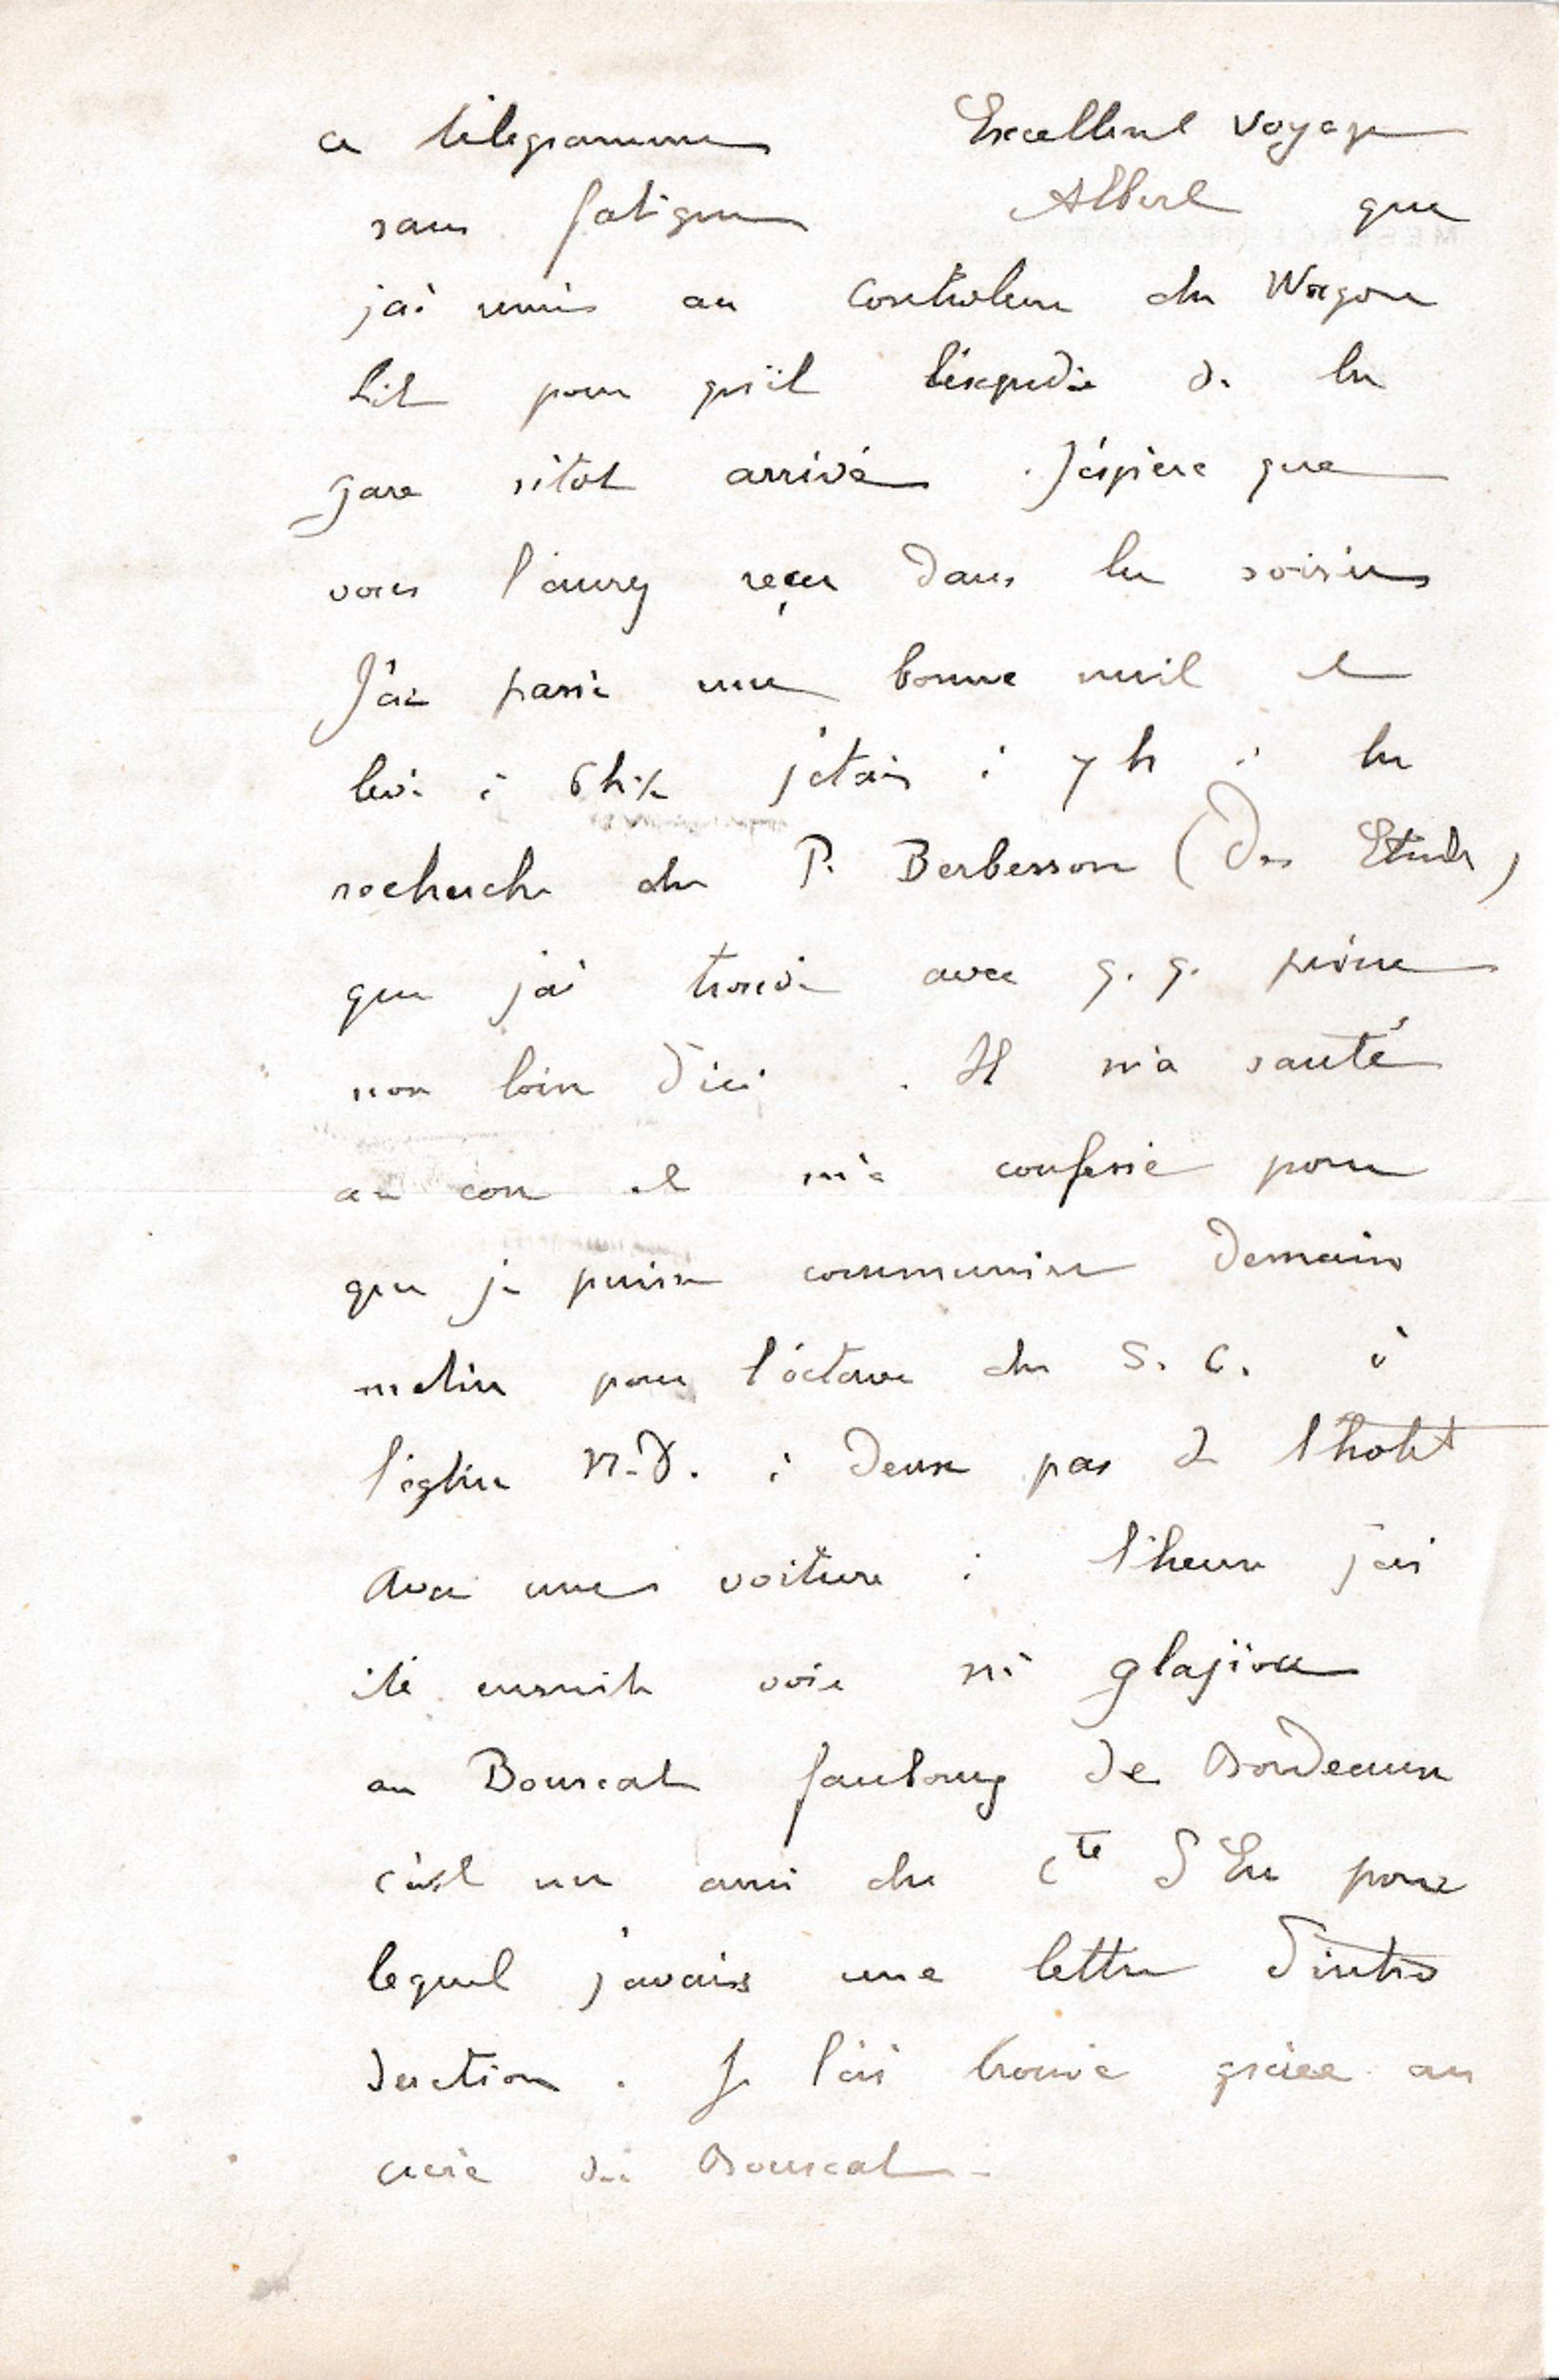 ce télégramme Excellent voyage
sans fatigue Albert que
j'ai remis au controleur du Wagon
Lit pour qu'il l'éxpedie de la
gare sitot arrivé. J'éspère que
vous l'aurez reçu dans la soirée
J'ai passé une bonne nuit et
levé à 6h½ j'étais à 7h à la
recherche du P. Berbesson (des Etudes)
que j'ai trouvé avec q.q. peine
non loin d'ici. Il m'a sauté
au cou et m'a confessé pour
que je puisse communier demain
matin pour l'octave du S. C. à
l'église N.D. à deux pas de l'hotel
Avec une voiture à l'heure j'ai
été ensuite voir Mr
au Bouscat faubourg de Bordeaux
c'est un ami du Cte d'Eu pour
lequel j'avais une lettre d'intro
duction. Je l'ai trouvé grâce au
curé du Bouscat -